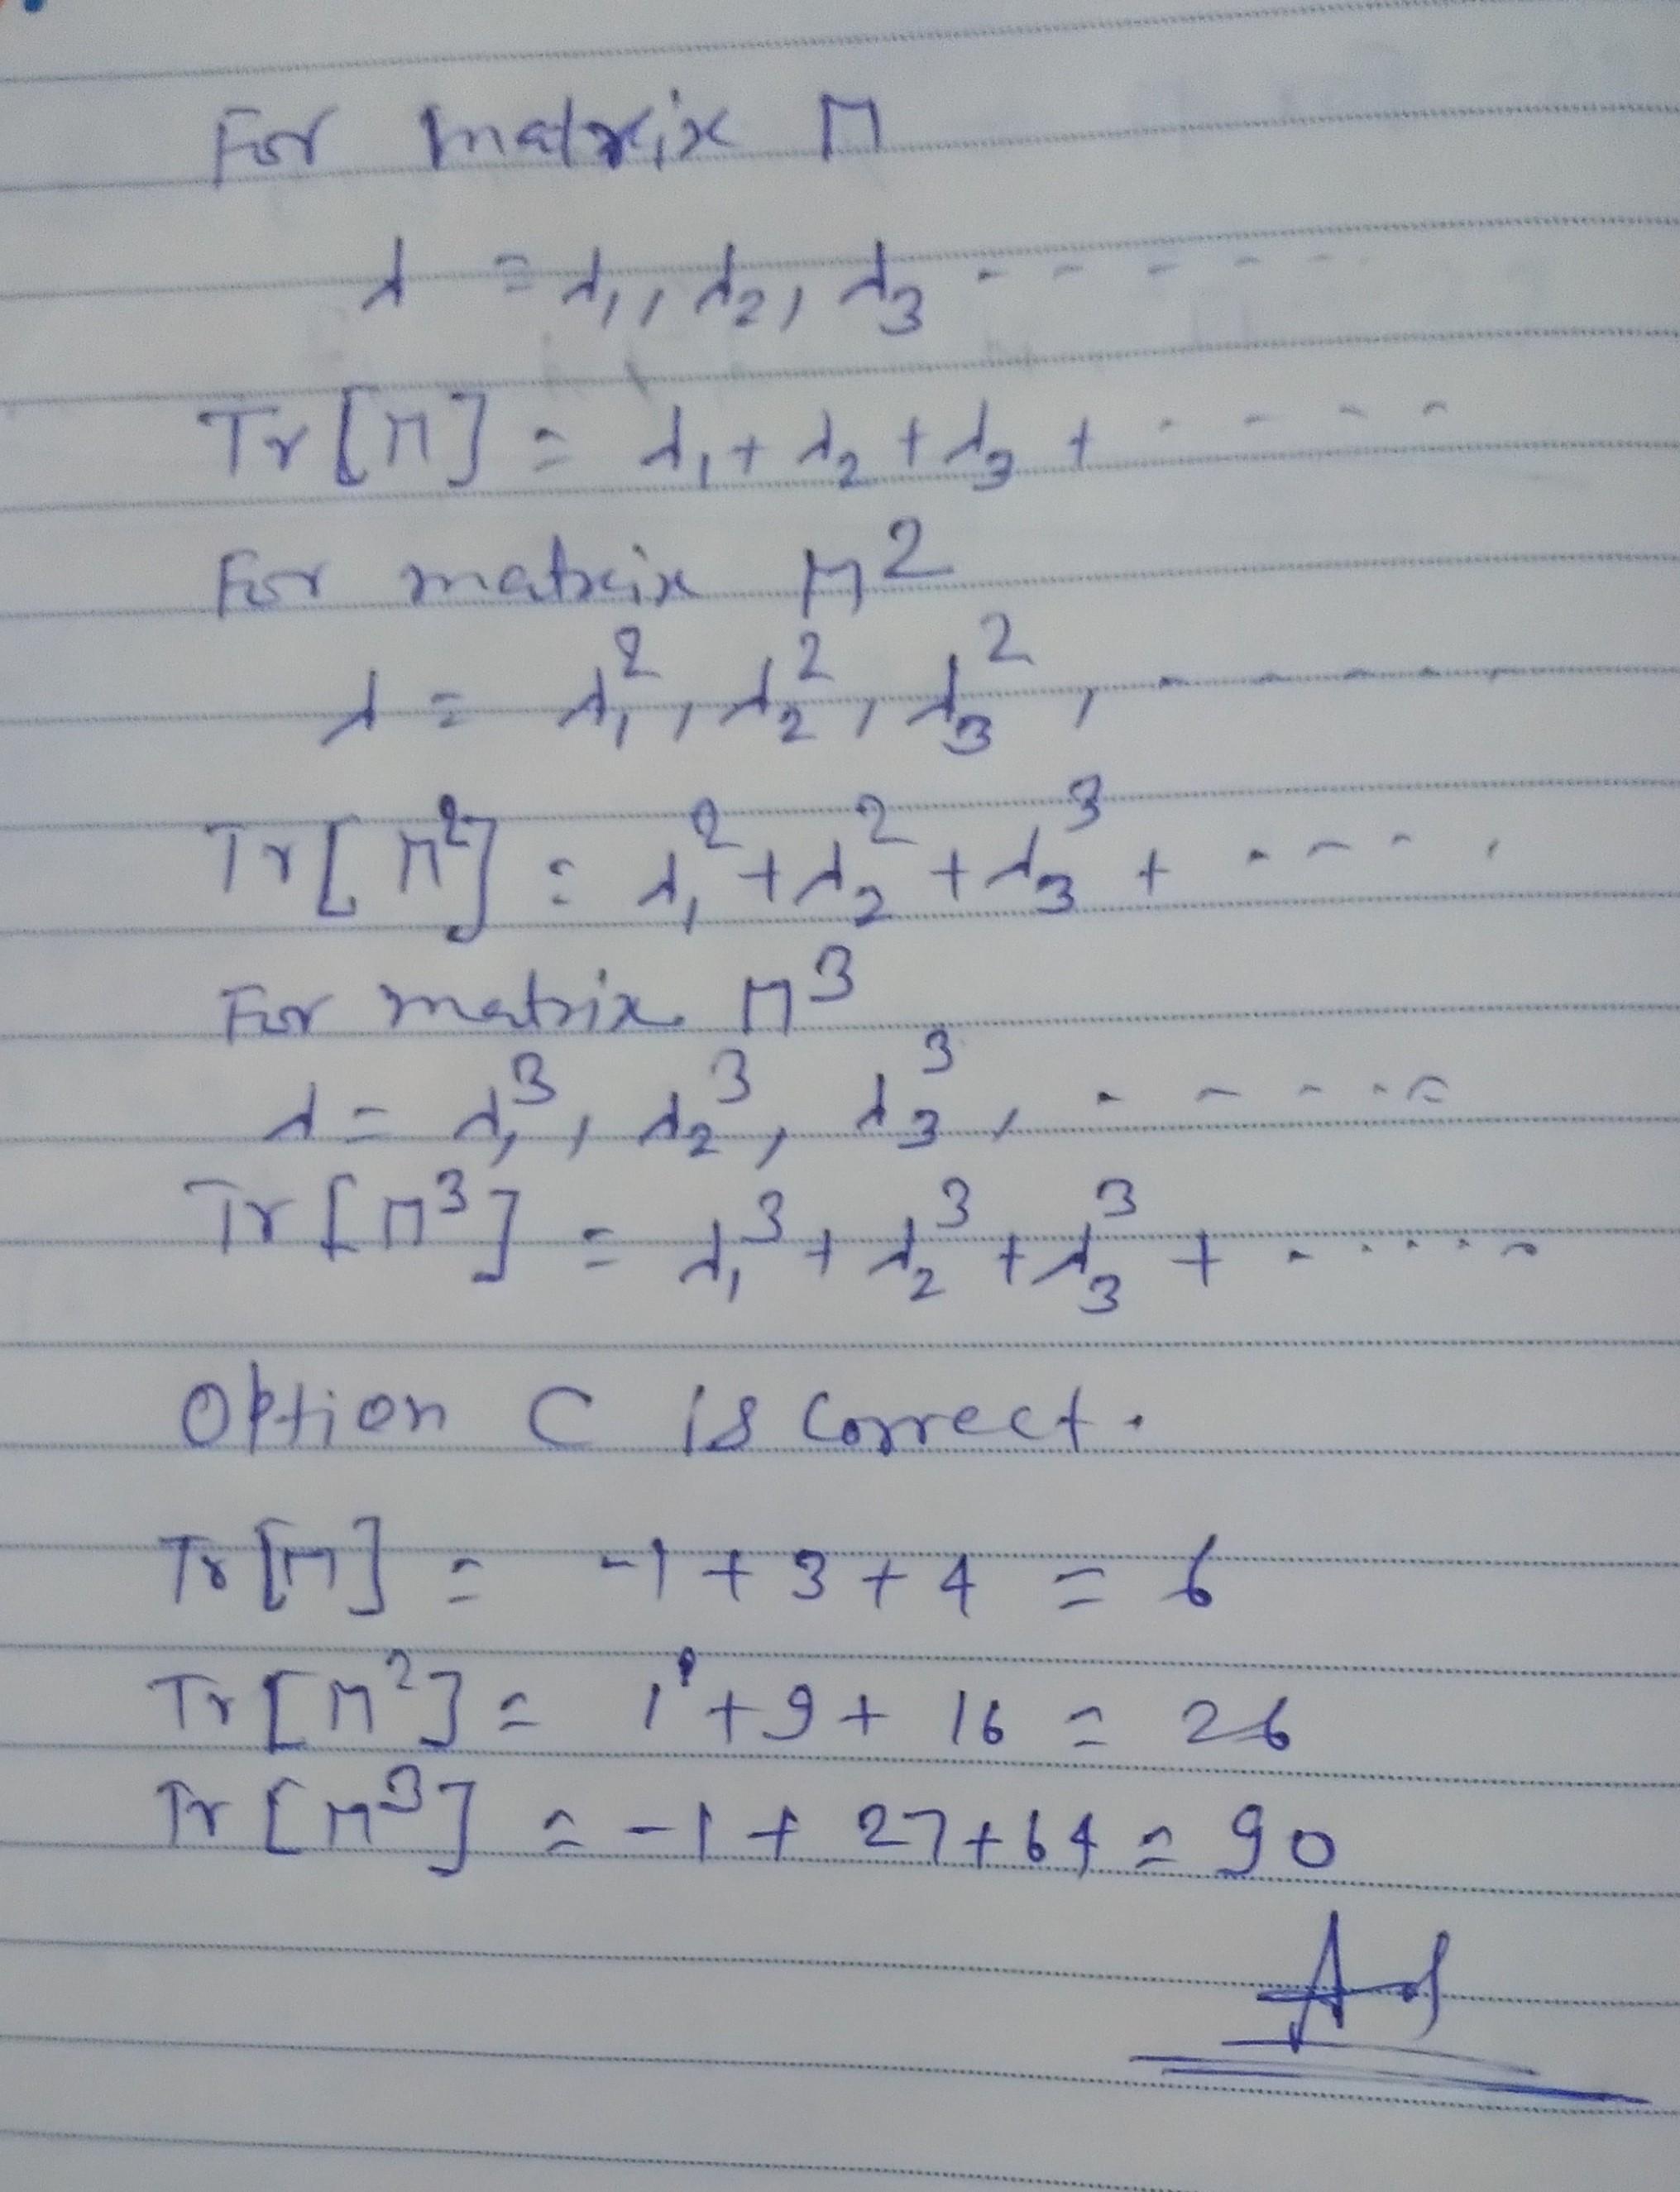 For matrix M
λ = λ₁, λ₂, λ₃ - - - - - -
Tr[M] = λ₁ + λ₂ + λ₃ + - - - -
For matrix M²
λ = λ₁², λ₂², λ₃², - - - - -
Tr[M²] = λ₁² + λ₂² + λ₃³ + - - - - -
For matrix M³
λ = λ₁³, λ₂³, λ₃³, - - - - -
Tr[M³] = λ₁³ + λ₂³ + λ₃³ + - - - - -
Option C is correct.
Tr[M] = -1 + 3 + 4 = 6
Tr[M²] = 1 + 9 + 16 = 26
Tr[M³] = -1 + 27 + 64 = 90